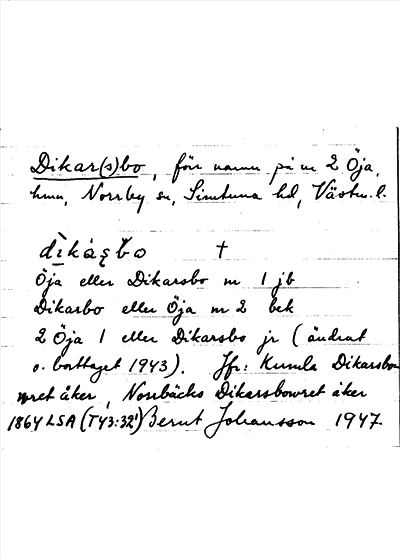 Dikar(s)bo, förr namn på nr 2 Öja,
hmn, Norrby sn, Simtuna hd, Västm. l.
dìkàşbo †
Öja eller Dikarsbo nr 1 jb
Dikarbo eller Öja nr 2 bek
2 Öja 1 eller Dikarsbo jr (ändrat
o. borttaget 1943). Jfr: Kumla Dikarsbo-
wret åker, Norrbäcks Dikarsbowret åker
1864 LSA (T43:32¹) Bernt Johansson 1947.